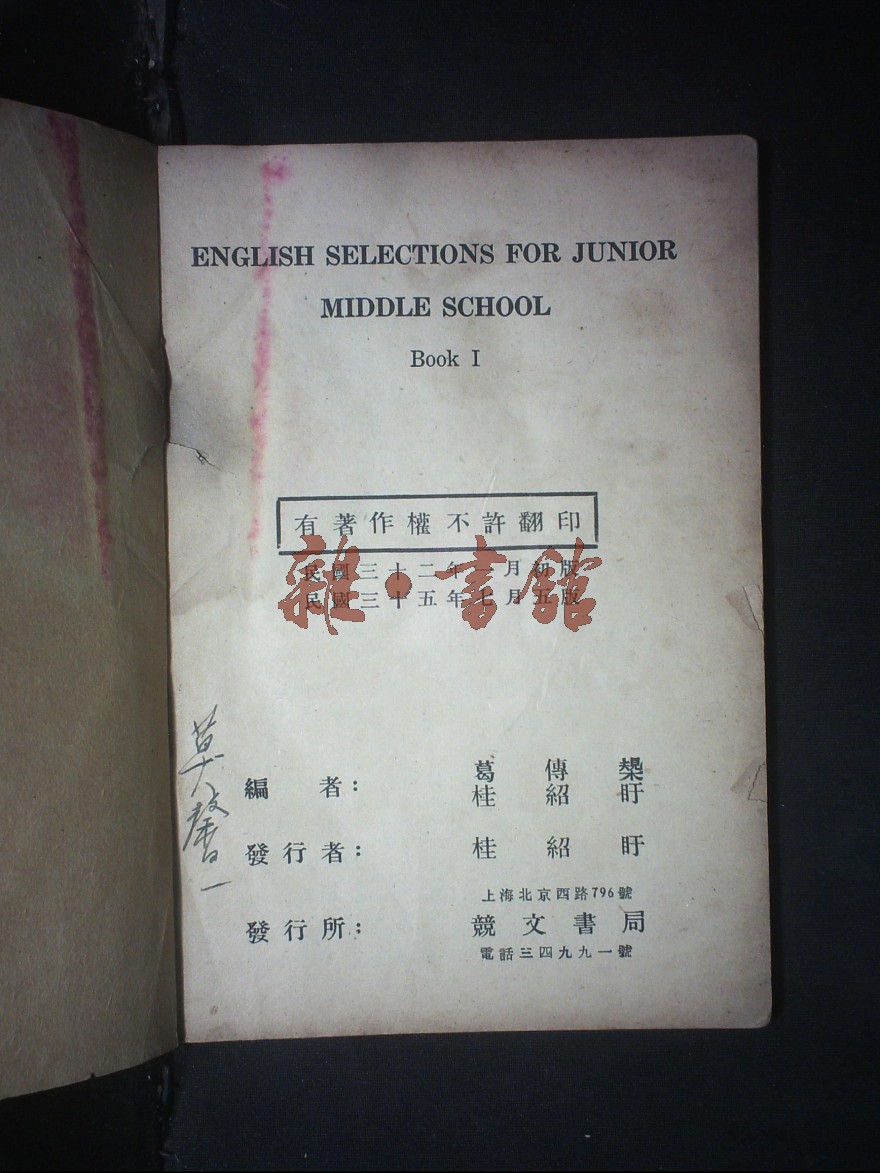 ENGLISH SELECTIONS FOR JUNIOR
MIDDLE SCHOOL
Book I
有著作權不許翻印
民國三十二年一月初版
民國三十五年七月五版
雜·書館
編者：
葛傳槼
桂紹盱
發行者：
桂紹盱
發行所：
上海北京西路796號
競文書局
電話三四九九一號